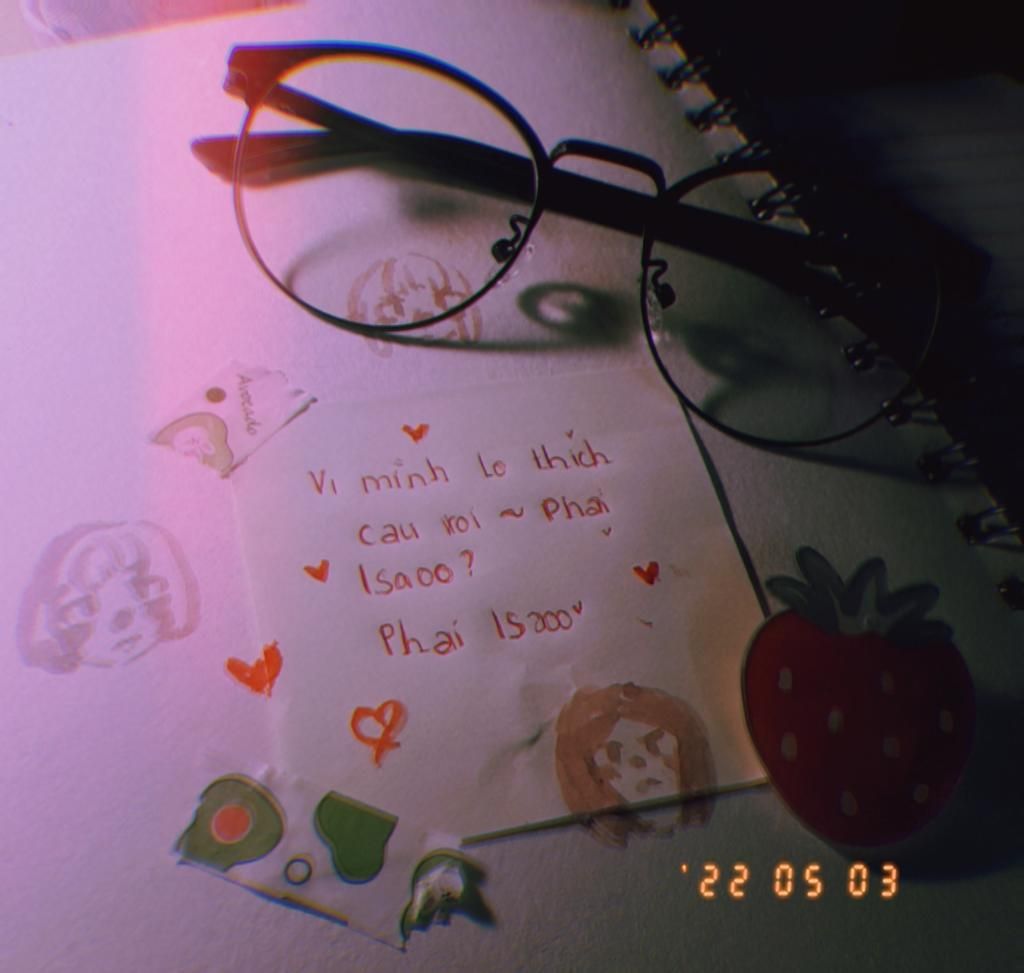 Avocado
Vì mình lo thích
cau roi ~ Phai
Isaoo?
Phai Isaoo
'22 05 03